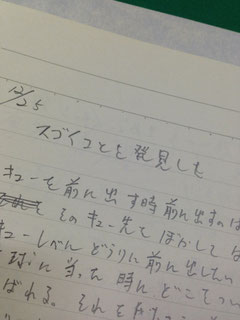 12/25
スゴイコとを発見しも
キューを前に出す時前に出すのは
そのキュー先とぼかしては
キューレベルにどうりに前に出したい
球に当った時にどこでつい
ばれる。それを